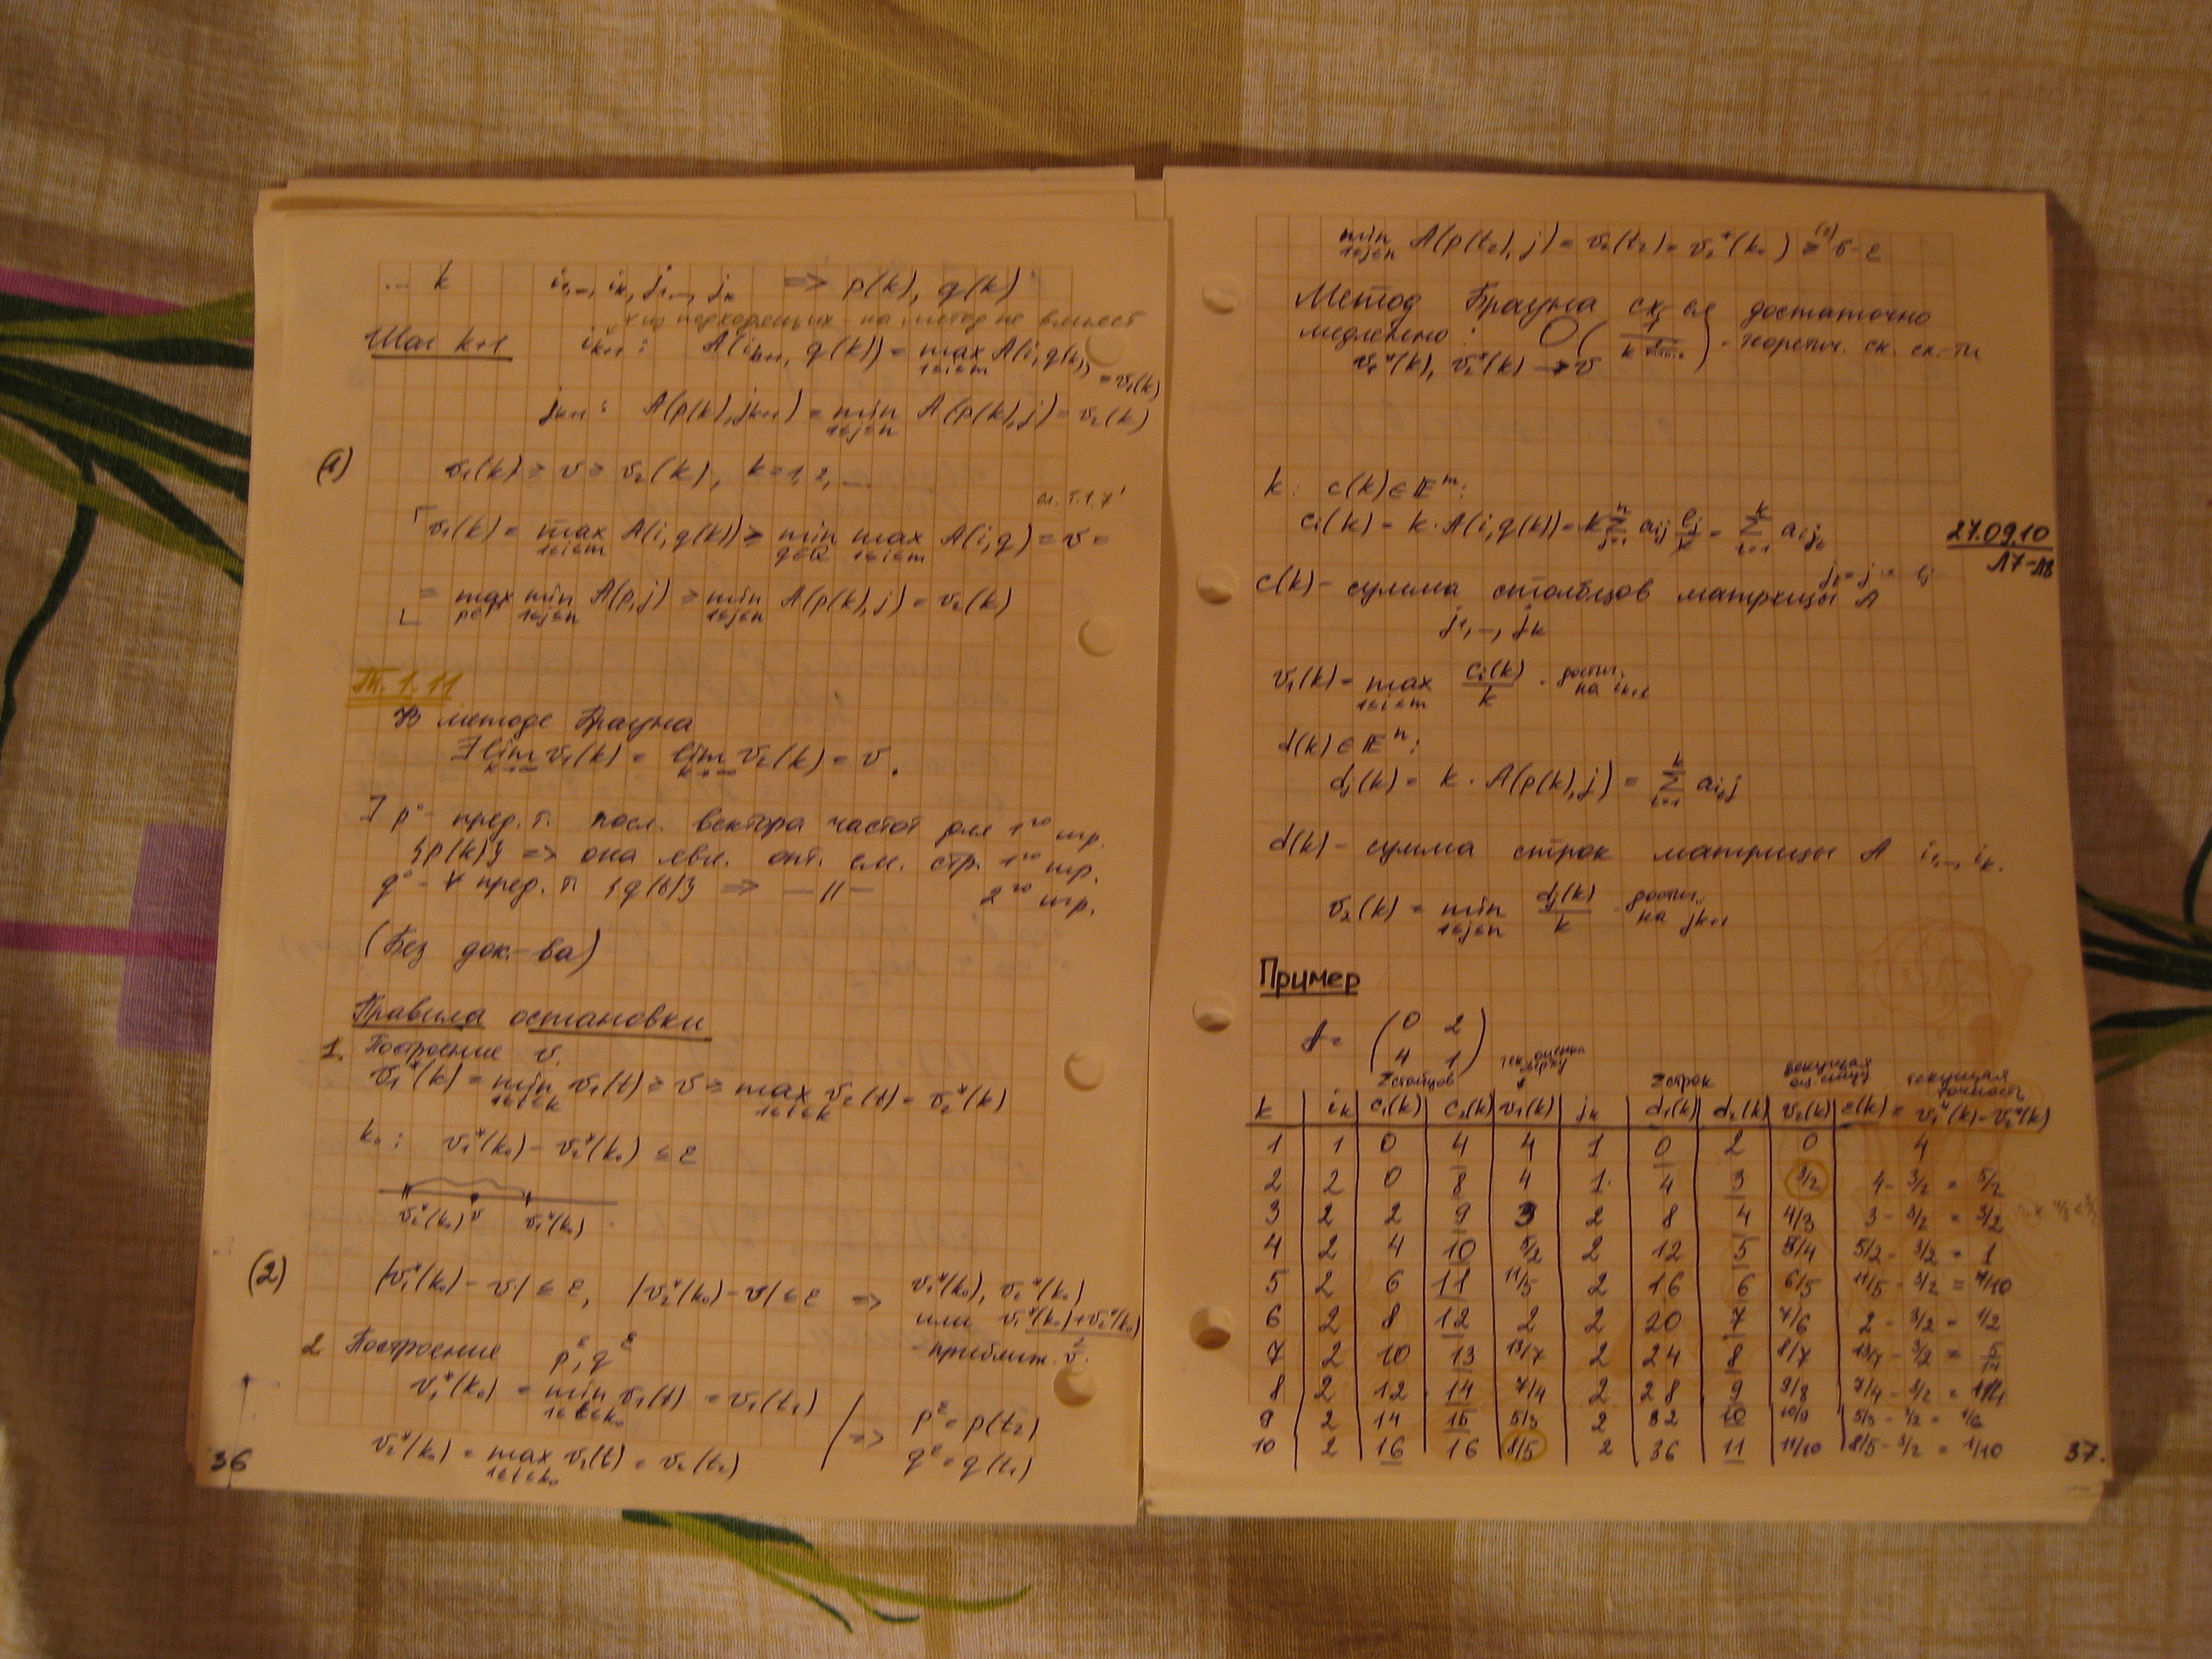 ... k i₁,…, iₖ, j₁,…, jₖ => p(k), q(k)
∀ из подходящих - на метод не влияет
Шаг k+1 iₖ₊₁ : A(iₖ₊₁, q(k)) = max_{1≤i≤m} A(i, q(k)) = v₁(k)
jₖ₊₁ : A(p(k), jₖ₊₁) = min_{1≤j≤n} A(p(k), j) = v₂(k)
(1) v₁(k) ≥ v ≥ v₂(k), k = 1, 2, ...
сл. Т.1.7'
⌈ v₁(k) = max_{1≤i≤m} A(i, q(k)) ≥ min_{q∈Q} max_{1≤i≤m} A(i, q) = v =
⌊ = max_{p∈P} min_{1≤j≤n} A(p, j) ≥ min_{1≤j≤n} A(p(k), j) = v₂(k)
Т. 1.11
В методе Брауна
∃ lim_{k→∞} v₁(k) = lim_{k→∞} v₂(k) = v.
] p° - пред. т. посл. вектора частот для 1го игр.
{p(k)} => она явл. опт. см. стр. 1го игр.
q° - ∀ пред. т. {q(k)} => —||— 2го игр.
(Без док-ва)
Правила остановки
1. Построение v.
v₁*(k) = min_{1≤t≤k} v₁(t) ≥ v ≥ max_{1≤t≤k} v₂(t) = v₂*(k)
k₀ : v₁*(k₀) - v₂*(k₀) ≤ ε
v₂*(k₀) v v₁*(k₀)
(2) |v₁*(k₀) - v| ≤ ε, |v₂*(k₀) - v| ≤ ε => v₁*(k₀), v₂*(k₀)
или (v₁*(k₀)+v₂*(k₀))/2
- приближ. v.
2. Построение p^ε, q^ε
v₁*(k₀) = min_{1≤t≤k₀} v₁(t) = v₁(t₁)
v₂*(k₀) = max_{1≤t≤k₀} v₂(t) = v₂(t₂)
=> p^ε = p(t₂)
q^ε = q(t₁)
36
min_{1≤j≤n} A(p(t₂), j) = v₂(t₂) = v₂*(k₀) ≥⁽²⁾ v - ε
Метод Брауна сх-ся достаточно
медленно : O( ) - теоретич. ск. сх-ти
v₁*(k), v₂*(k) → v
k : c(k) ∈ Eᵐ :
cᵢ(k) = k · A(i, q(k)) = k Σ_{j=1}^{n} aᵢⱼ lⱼ/k = Σ_{t=1}^{k} aᵢⱼₜ
27.09.10
Л7-Л8
c(k) - сумма столбцов матрицы A
j₁,…, jₖ
v₁(k) = max_{1≤i≤m} cᵢ(k)/k - достиг. на iₖ₊₁
d(k) ∈ Eⁿ :
dⱼ(k) = k · A(p(k), j) = Σ_{t=1}^{k} a_{iₜ j}
d(k) - сумма строк матрицы A i₁,…, iₖ.
v₂(k) = min_{1≤j≤n} dⱼ(k)/k - достиг. на jₖ₊₁
Пример
A = (0 2
4 1)
Σ столбцов тек. оценка сверху Σ строк текущая оц. снизу текущая точность
k | iₖ | c₁(k) | c₂(k) | v₁(k) | jₖ | d₁(k) | d₂(k) | v₂(k) | ε(k) = v₁*(k) - v₂*(k)
1 | 1 | 0 | 4 | 4 | 1 | 0 | 2 | 0 | 4
2 | 2 | 0 | 8 | 4 | 1 | 4 | 3 | 3/2 | 4 - 3/2 = 5/2
3 | 2 | 2 | 9 | 3 | 2 | 8 | 4 | 4/3 | 3 - 3/2 = 3/2
4 | 2 | 4 | 10 | 5/2 | 2 | 12 | 5 | 5/4 | 5/2 - 3/2 = 1
5 | 2 | 6 | 11 | 11/5 | 2 | 16 | 6 | 6/5 | 11/5 - 3/2 = 7/10
6 | 2 | 8 | 12 | 2 | 2 | 20 | 7 | 7/6 | 2 - 3/2 = 1/2
7 | 2 | 10 | 13 | 13/7 | 2 | 24 | 8 | 8/7 | 13/7 - 3/2 = 5/14
8 | 2 | 12 | 14 | 7/4 | 2 | 28 | 9 | 9/8 | 7/4 - 3/2 = 1/4
9 | 2 | 14 | 15 | 5/3 | 2 | 32 | 10 | 10/9 | 5/3 - 3/2 = 1/6
10 | 2 | 16 | 16 | 8/5 | 2 | 36 | 11 | 11/10 | 8/5 - 3/2 = 1/10
37.